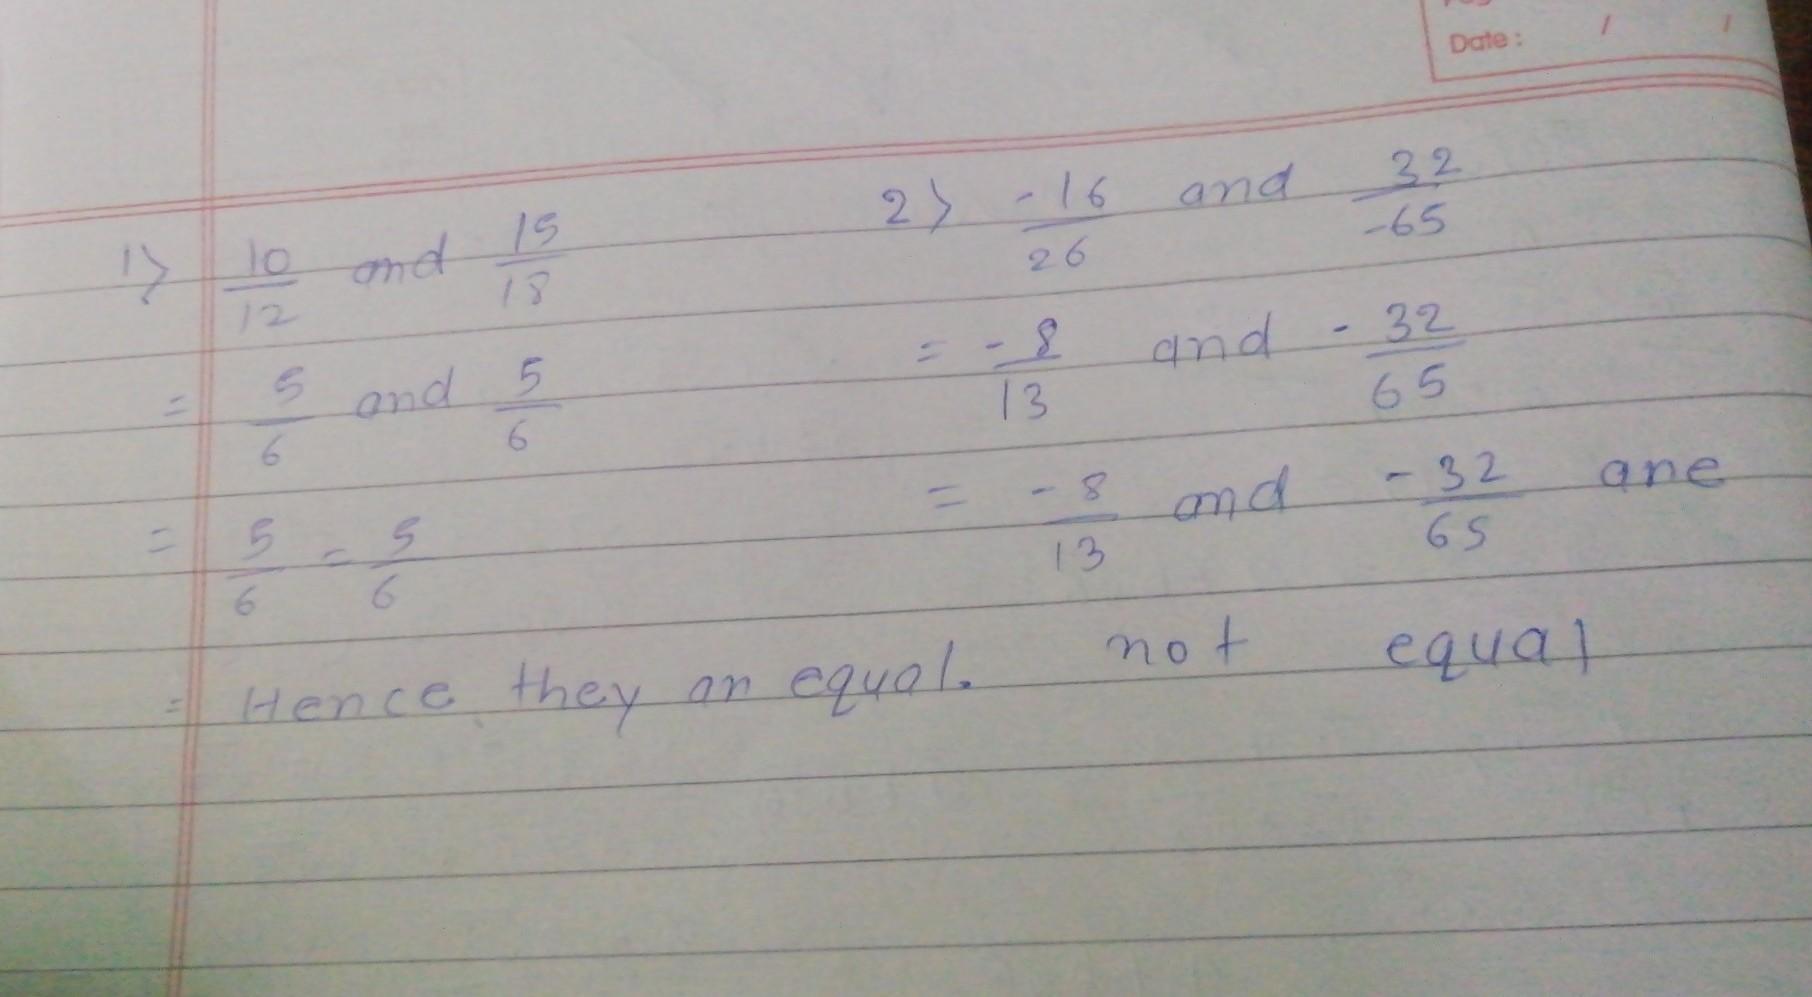 Date: / /
1> 10/12 and 15/18
= 5/6 and 5/6
= 5/6 = 5/6
= Hence they an equal.
2> -16/26 and 32/-65
= -8/13 and -32/65
= -8/13 and -32/65 are
not equal